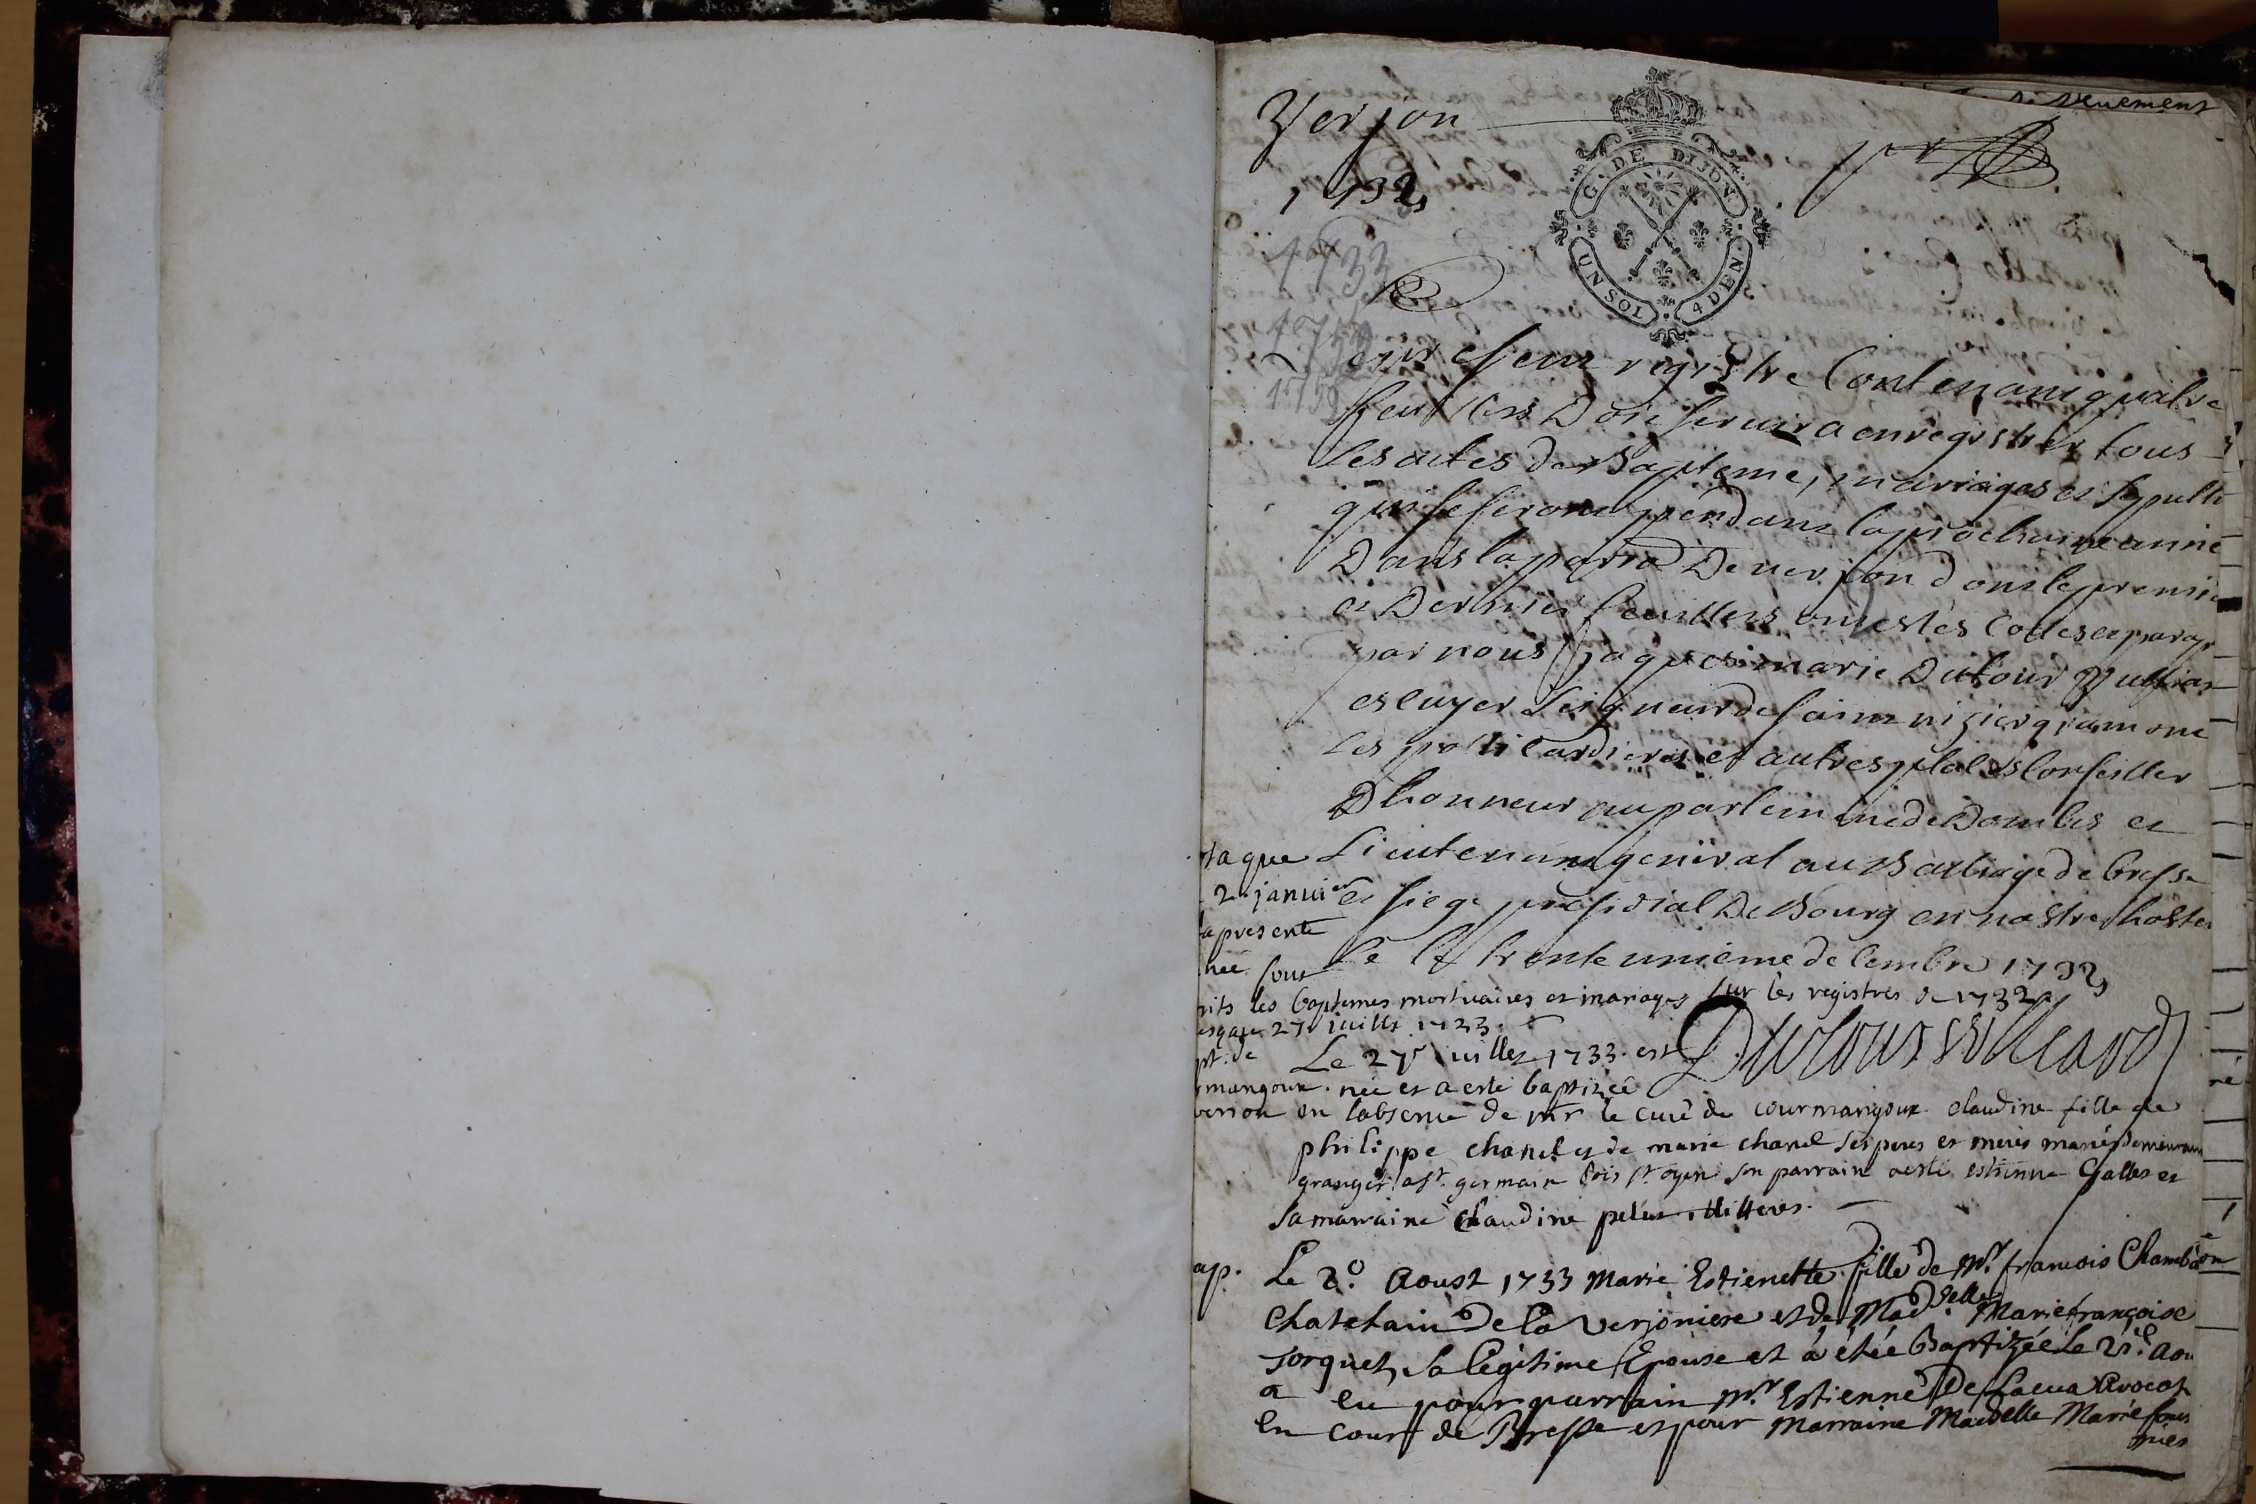 Verjon
1732
G. DE DIJON
UN SOL 4 DEN.
1733
registre Contenant quatre
feuillets Doit servir a enregistrer tous
les actes de Bapteme, mariages et sepultu
qui se feront pendant la prochaine année
Dans la parroe De verjon dont le premie
et Dernier feuillets ont estés Cottes et parap
par nous jaques marie Dutour Vulliar
escuyer seigneur de saint nizier
les et autres places Conseiller
Dhonneur au parlement de Dombes et
Lieutenant general au Bailliage de bresse
et siege presidial De Bourg en nostre hostel
le trente unieme decembre 1732
2 janvier
la presente
née sont
rits les baptemes mortuaires et mariages sur les registres de 1732
jusque 27 juillt 1733.
Dutour Vulliard
pt. de
rmangoux
verion
Le 27e juillet 1733. est
née et a esté baptizée
en labsence de mr le curé de courmangoux claudine fille de
philippe chanel et de marie chanel ses peres et meres mariés demeurant
granger a st. germain son parrain aesté estienne Gallet et
sa marraine claudine illitteres.
ap.
Le 2e. Aoust 1733 Marie Estienette fille de Mr. francois Chambaon
Chatelain De la verjoniere et de Madselle Marie françoise
Jorquet, sa legitime Epouse et a étée Baptizée le aou
a eu pour parrain Mr. Estienne De Lacua Avocat
En Cour de Bresse et pour Marraine Madelle Marie four
nier